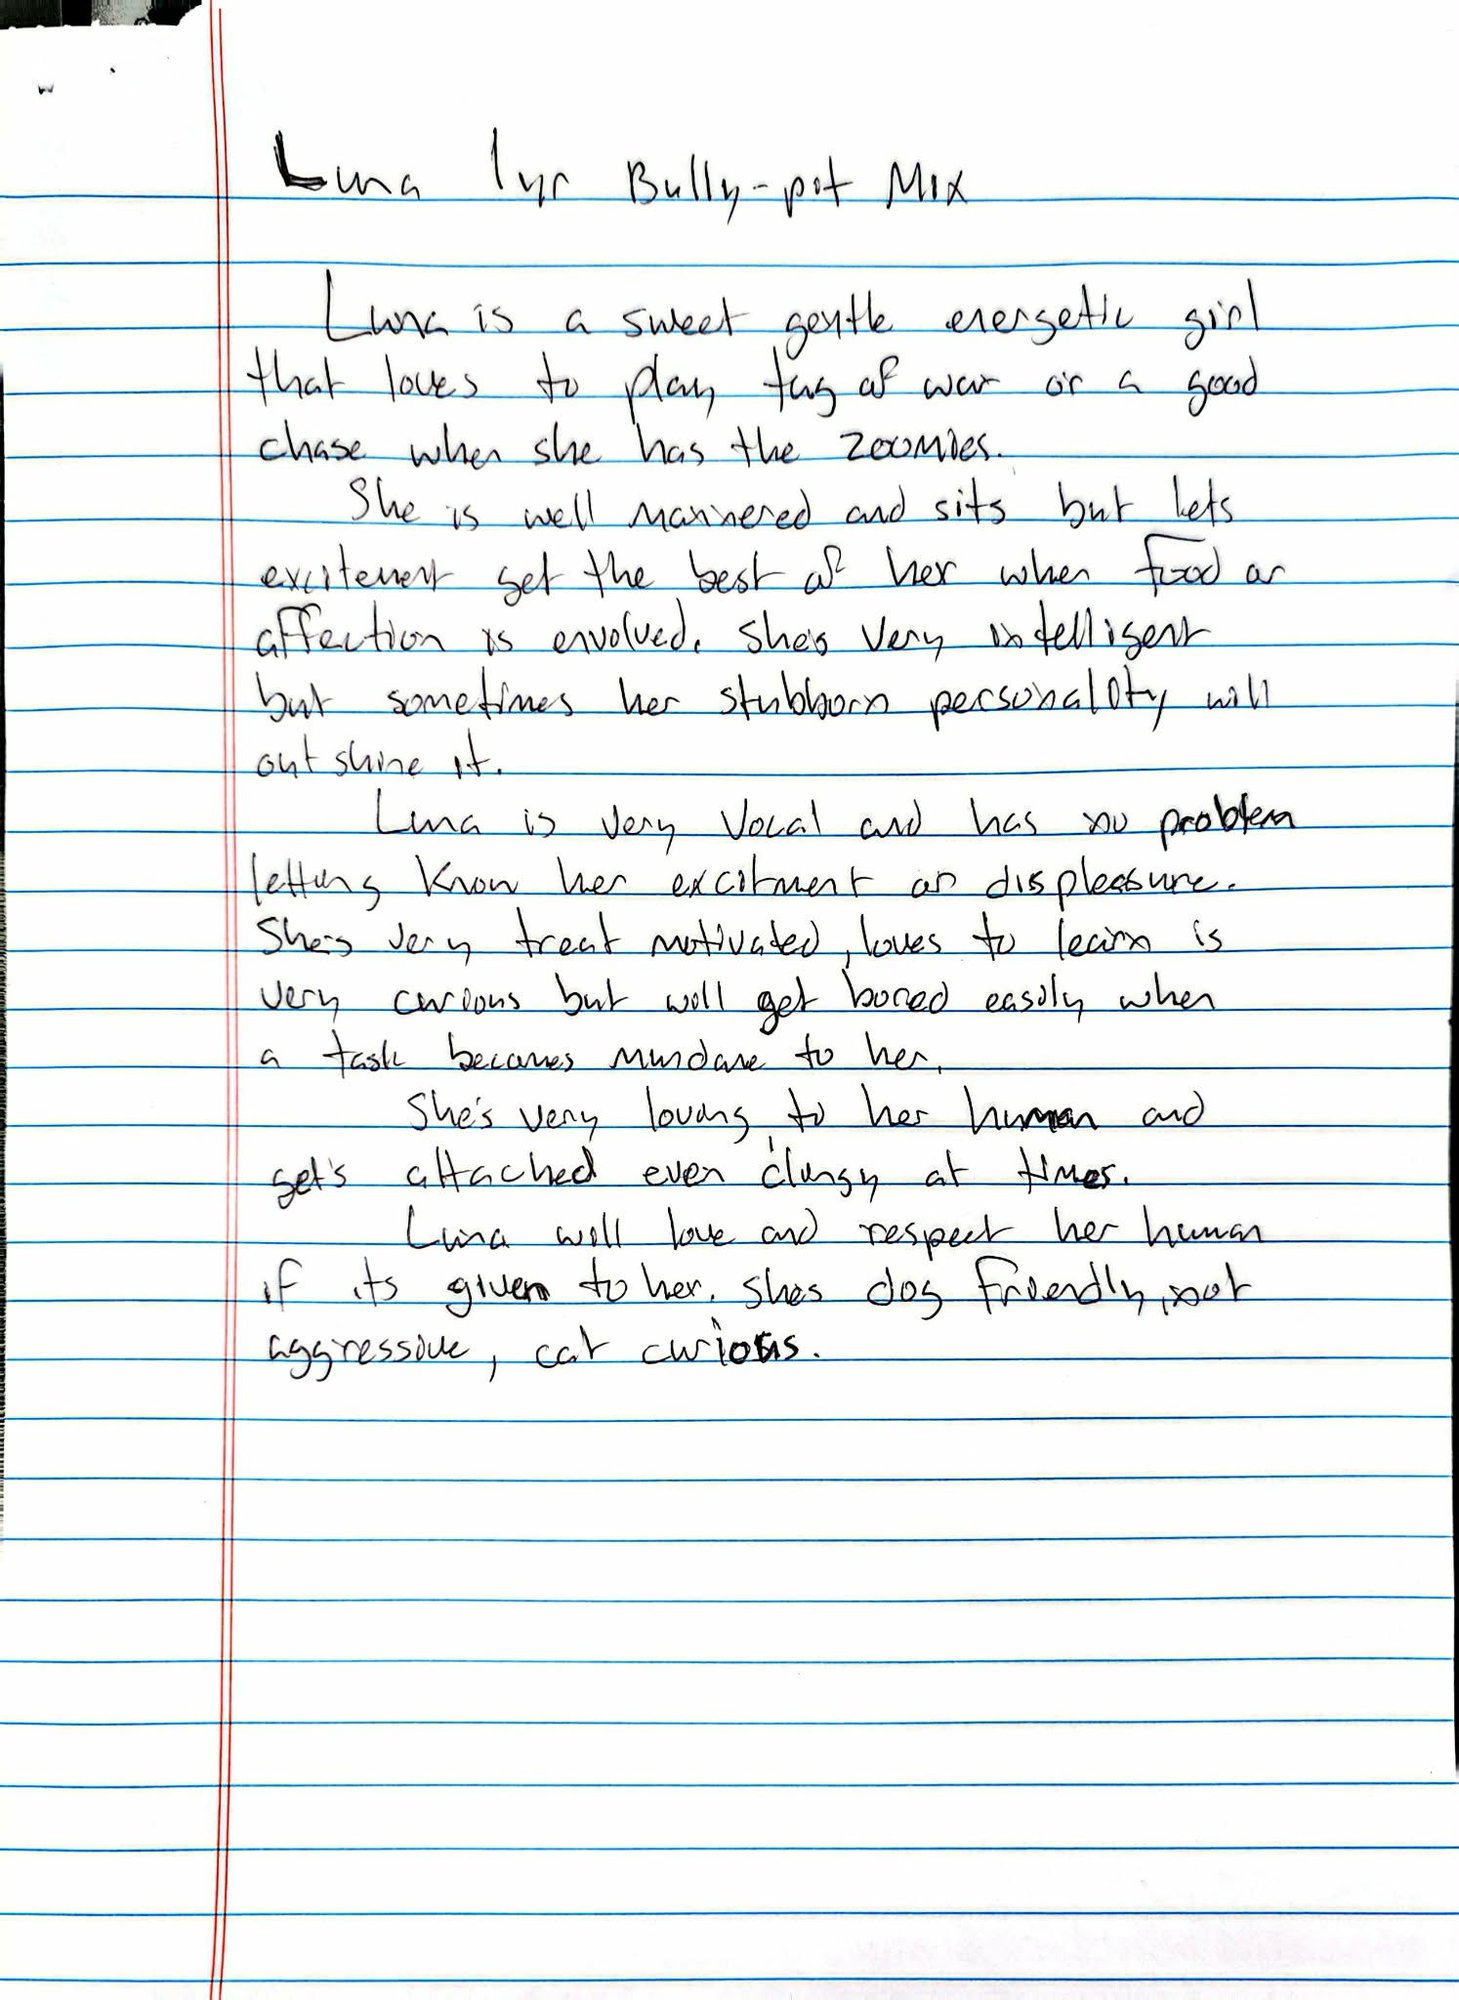 Luna 1yr Bully-pit Mix
Luna is a sweet gentle energetic girl
that loves to play tug of war or a good
chase when she has the zoomies.
She is well mannered and sits but lets
excitement get the best of her when food or
affection is envolved. She's very intelligent
but sometimes her stubborn personality will
out shine it.
Luna is very vocal and has no problem
letting know her excitment or displeasure.
She's very treat motivated, loves to learn is
very curious but will get bored easily when
a task becomes mundane to her.
She's very loving to her human and
get's attached even clingy at times.
Luna will love and respect her human
if its given to her. Shes dog friendly, not
aggressive, cat curious.